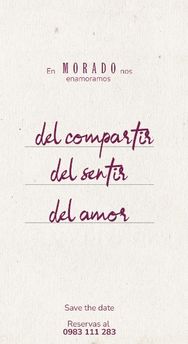 En MORADO nos
enamoramos
del compartir
del sentir
del amor
Save the date
Reservas al
0983 111 283